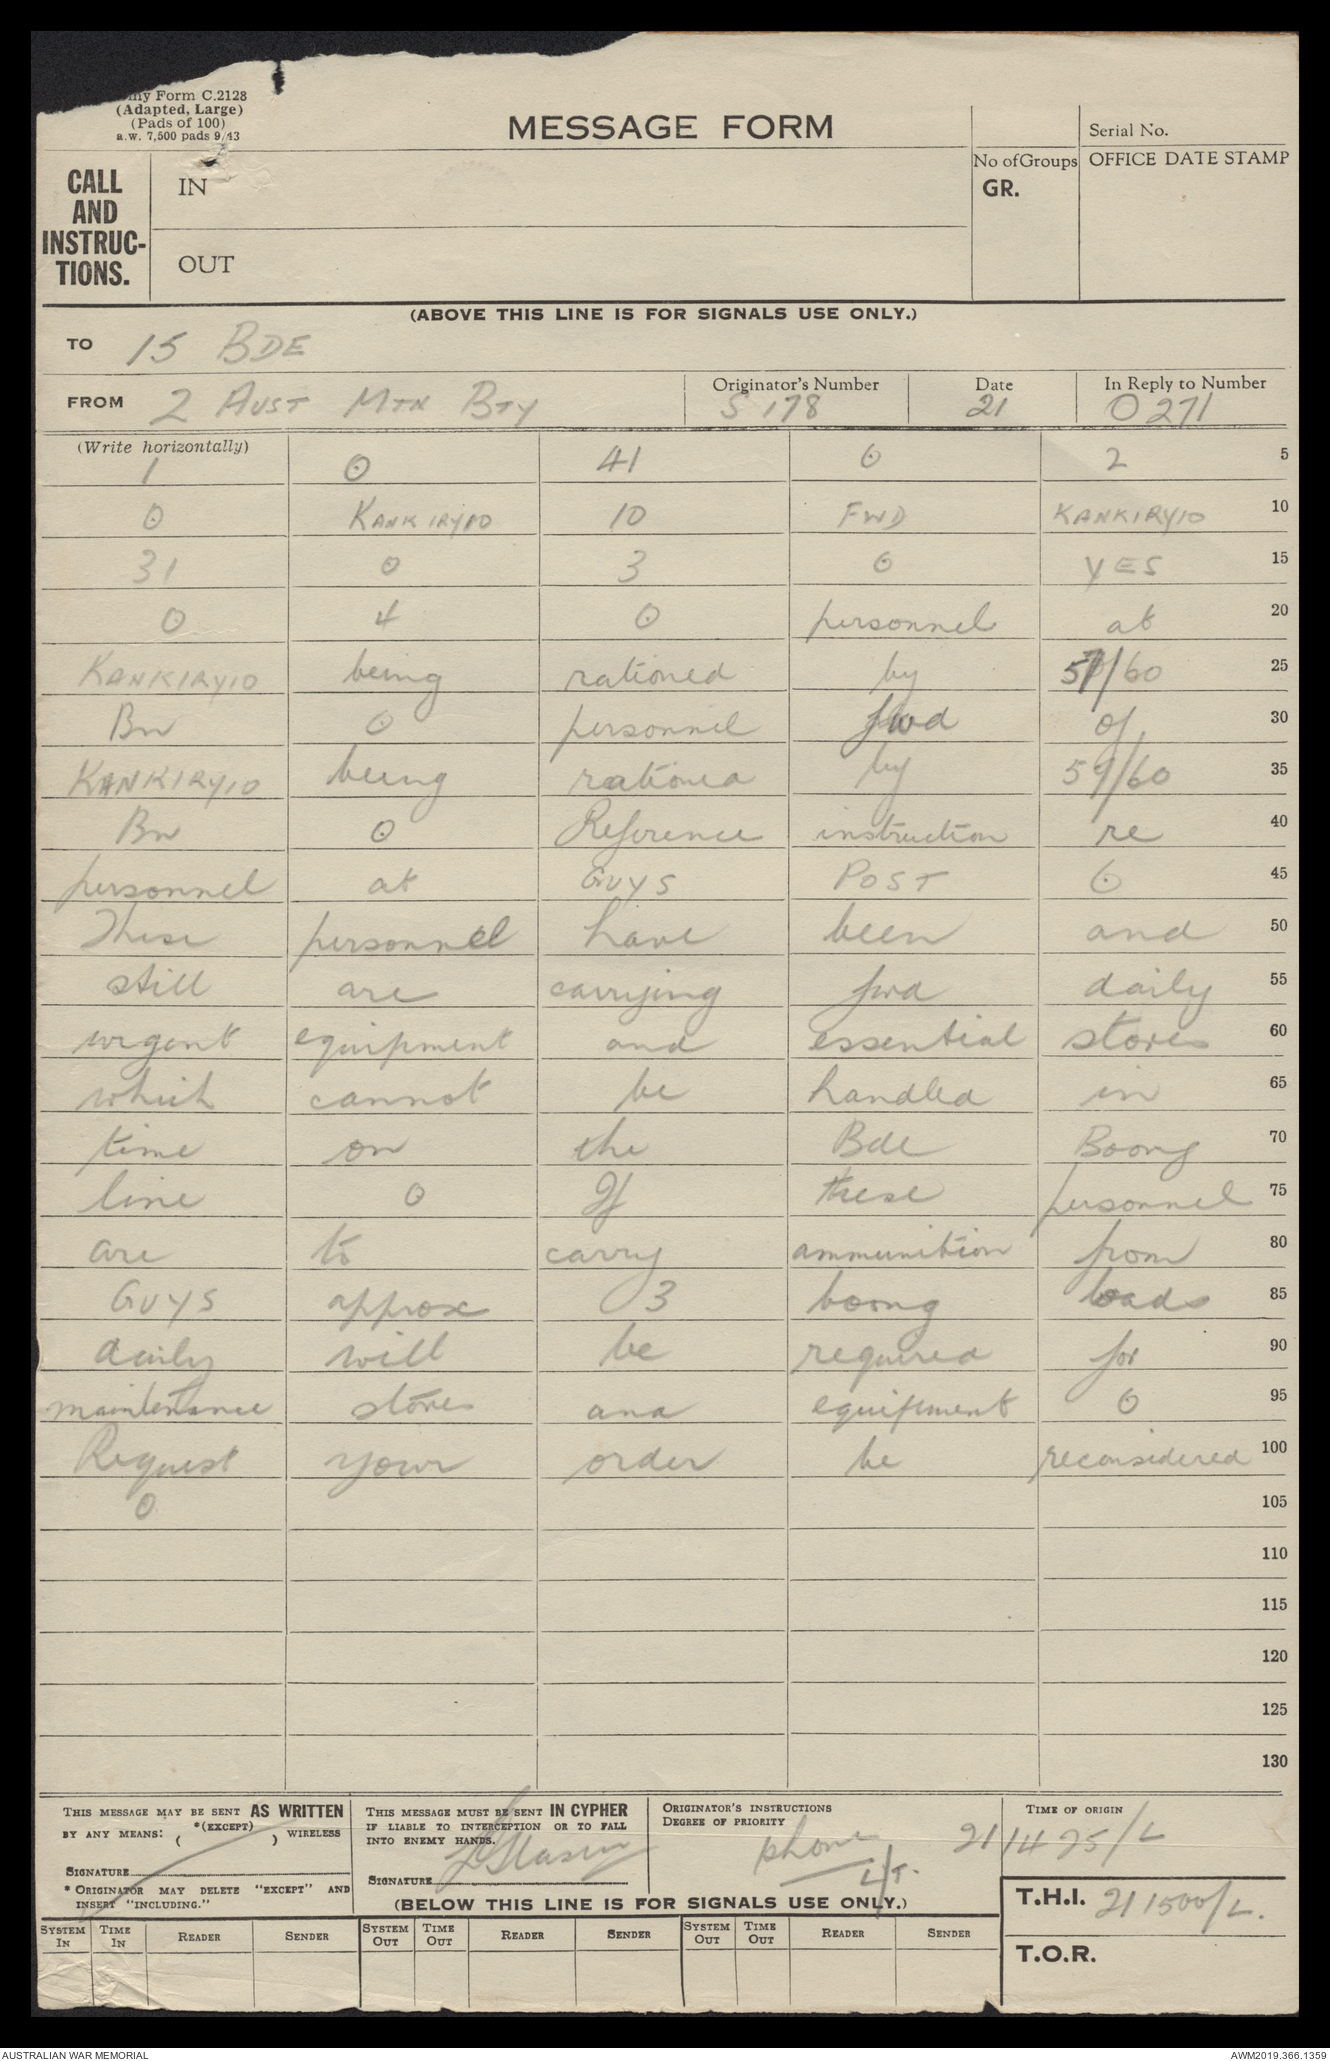 my Form C.2128
(Adapted, Large)
(Pads of 100)
a.w. 7,500 pads 9/43
MESSAGE FORM
Serial No.
No of Groups
GR.
OFFICE DATE STAMP
CALL AND INSTRUC-TIONS.
IN
OUT
(ABOVE THIS LINE IS FOR SIGNALS USE ONLY.)
TO 15 BDE
FROM 2 AUST MTN BTY
Originator's Number S 178
Date 21
In Reply to Number O 271
(Write horizontally)
1 ⊙ 41 ⊙ 2 5
⊙ KANKIRYIO 10 FWD KANKIRYIO 10
31 ⊙ 3 ⊙ YES 15
⊙ 4 ⊙ personnel at 20
KANKIRYIO being rationed by 57/60 25
Bn ⊙ personnel fwd of 30
KANKIRYIO being rationed by 59/60 35
Bn ⊙ Reference instruction re 40
personnel at GUYS POST ⊙ 45
These personnel have been and 50
still are carrying fwd daily 55
urgent equipment and essential stores 60
which cannot be handled in 65
time on the Bde Boong 70
line ⊙ If these personnel 75
are to carry ammunition from 80
GUYS approx 3 boong loads 85
daily will be required for 90
maintenance stores and equipment ⊙ 95
Request your order be reconsidered 100
⊙ 105
110
115
120
125
130
THIS MESSAGE MAY BE SENT AS WRITTEN
BY ANY MEANS: *(EXCEPT) ( ) WIRELESS
SIGNATURE
* ORIGINATOR MAY DELETE "EXCEPT" AND
INSERT "INCLUDING."
THIS MESSAGE MUST BE SENT IN CYPHER
IF LIABLE TO INTERCEPTION OR TO FALL
INTO ENEMY HANDS.
SIGNATURE
ORIGINATOR'S INSTRUCTIONS
DEGREE OF PRIORITY
phone
LT.
TIME OF ORIGIN
21/1425/L
(BELOW THIS LINE IS FOR SIGNALS USE ONLY.)
T.H.I. 21 1500/L.
T.O.R.
SYSTEM IN TIME IN READER SENDER SYSTEM OUT TIME OUT READER SENDER SYSTEM OUT TIME OUT READER SENDER
AUSTRALIAN WAR MEMORIAL
AWM2019.366.1359